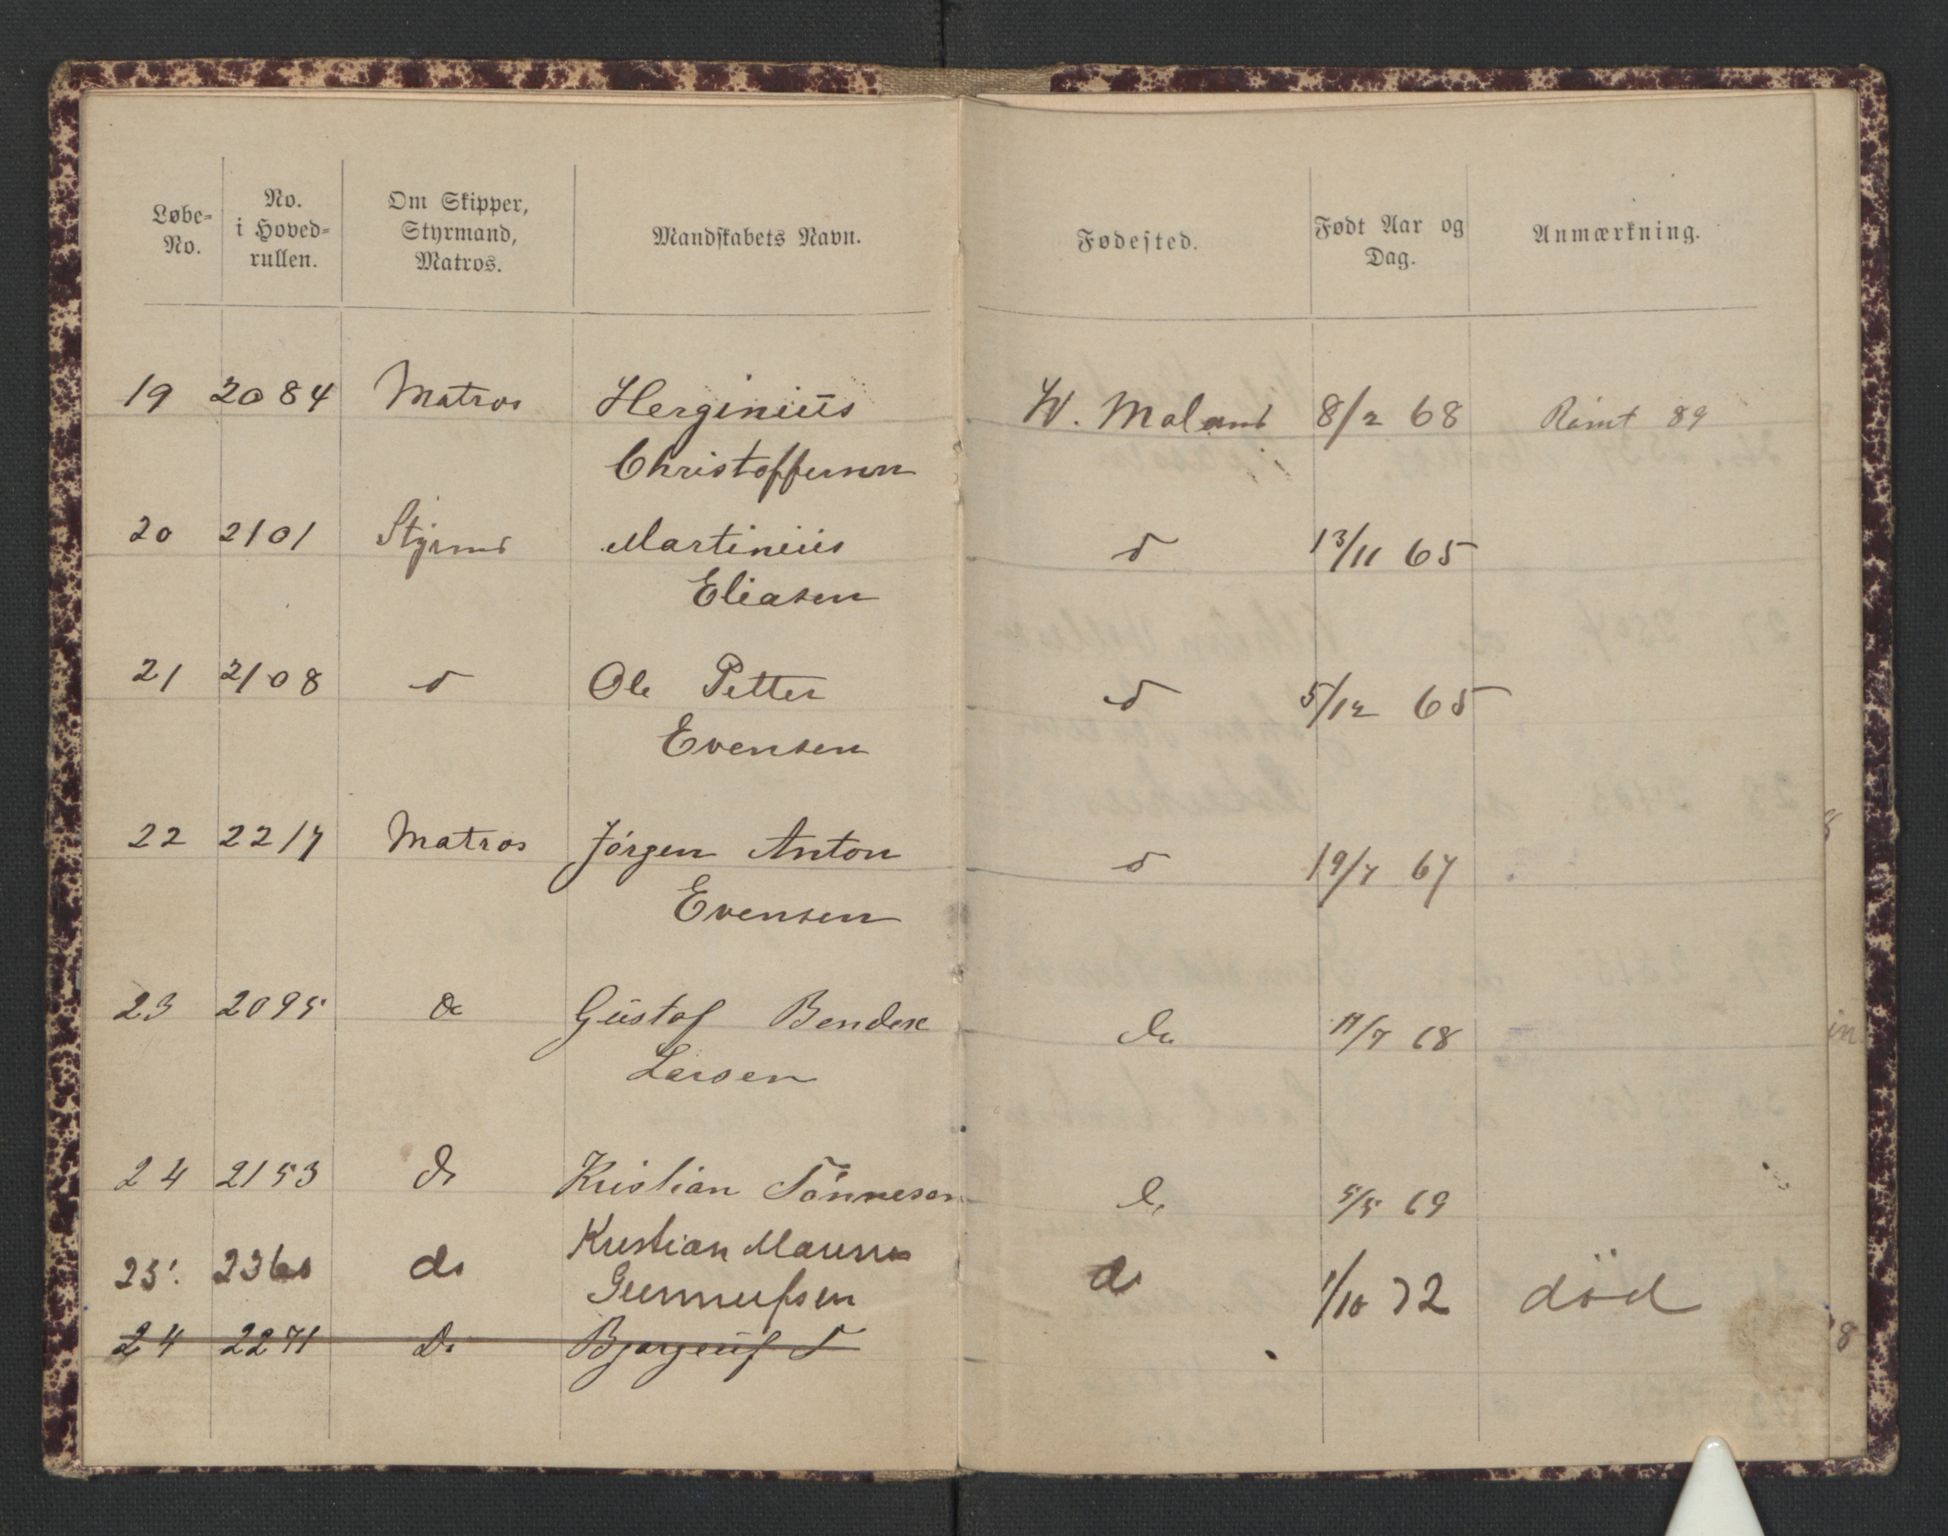 Løbe-No. No. i Hoved-rullen. Om Skipper, Styrmand, Matros. Mandskabets Navn. Fødested. Født Aar og Dag. Anmærkning.
19 2084 Matros Herginius W. Moland 8/2 68 Rømt 89
Christoffersen
20 2101 Styrmd Martinius d 13/11 65
Eliasen
21 2108 d Ole Petter d 5/12 65
Evensen
22 2217 Matros Jörgen Anton d 19/7 67
Evensen
23 2095 do Gustaf do 11/7 68
Larsen
24 2153 do Kristian Tönnesen do 5/5 69
Kristian
25. 236 do Gunnufsen do 1/10 72 död
24 2271 do